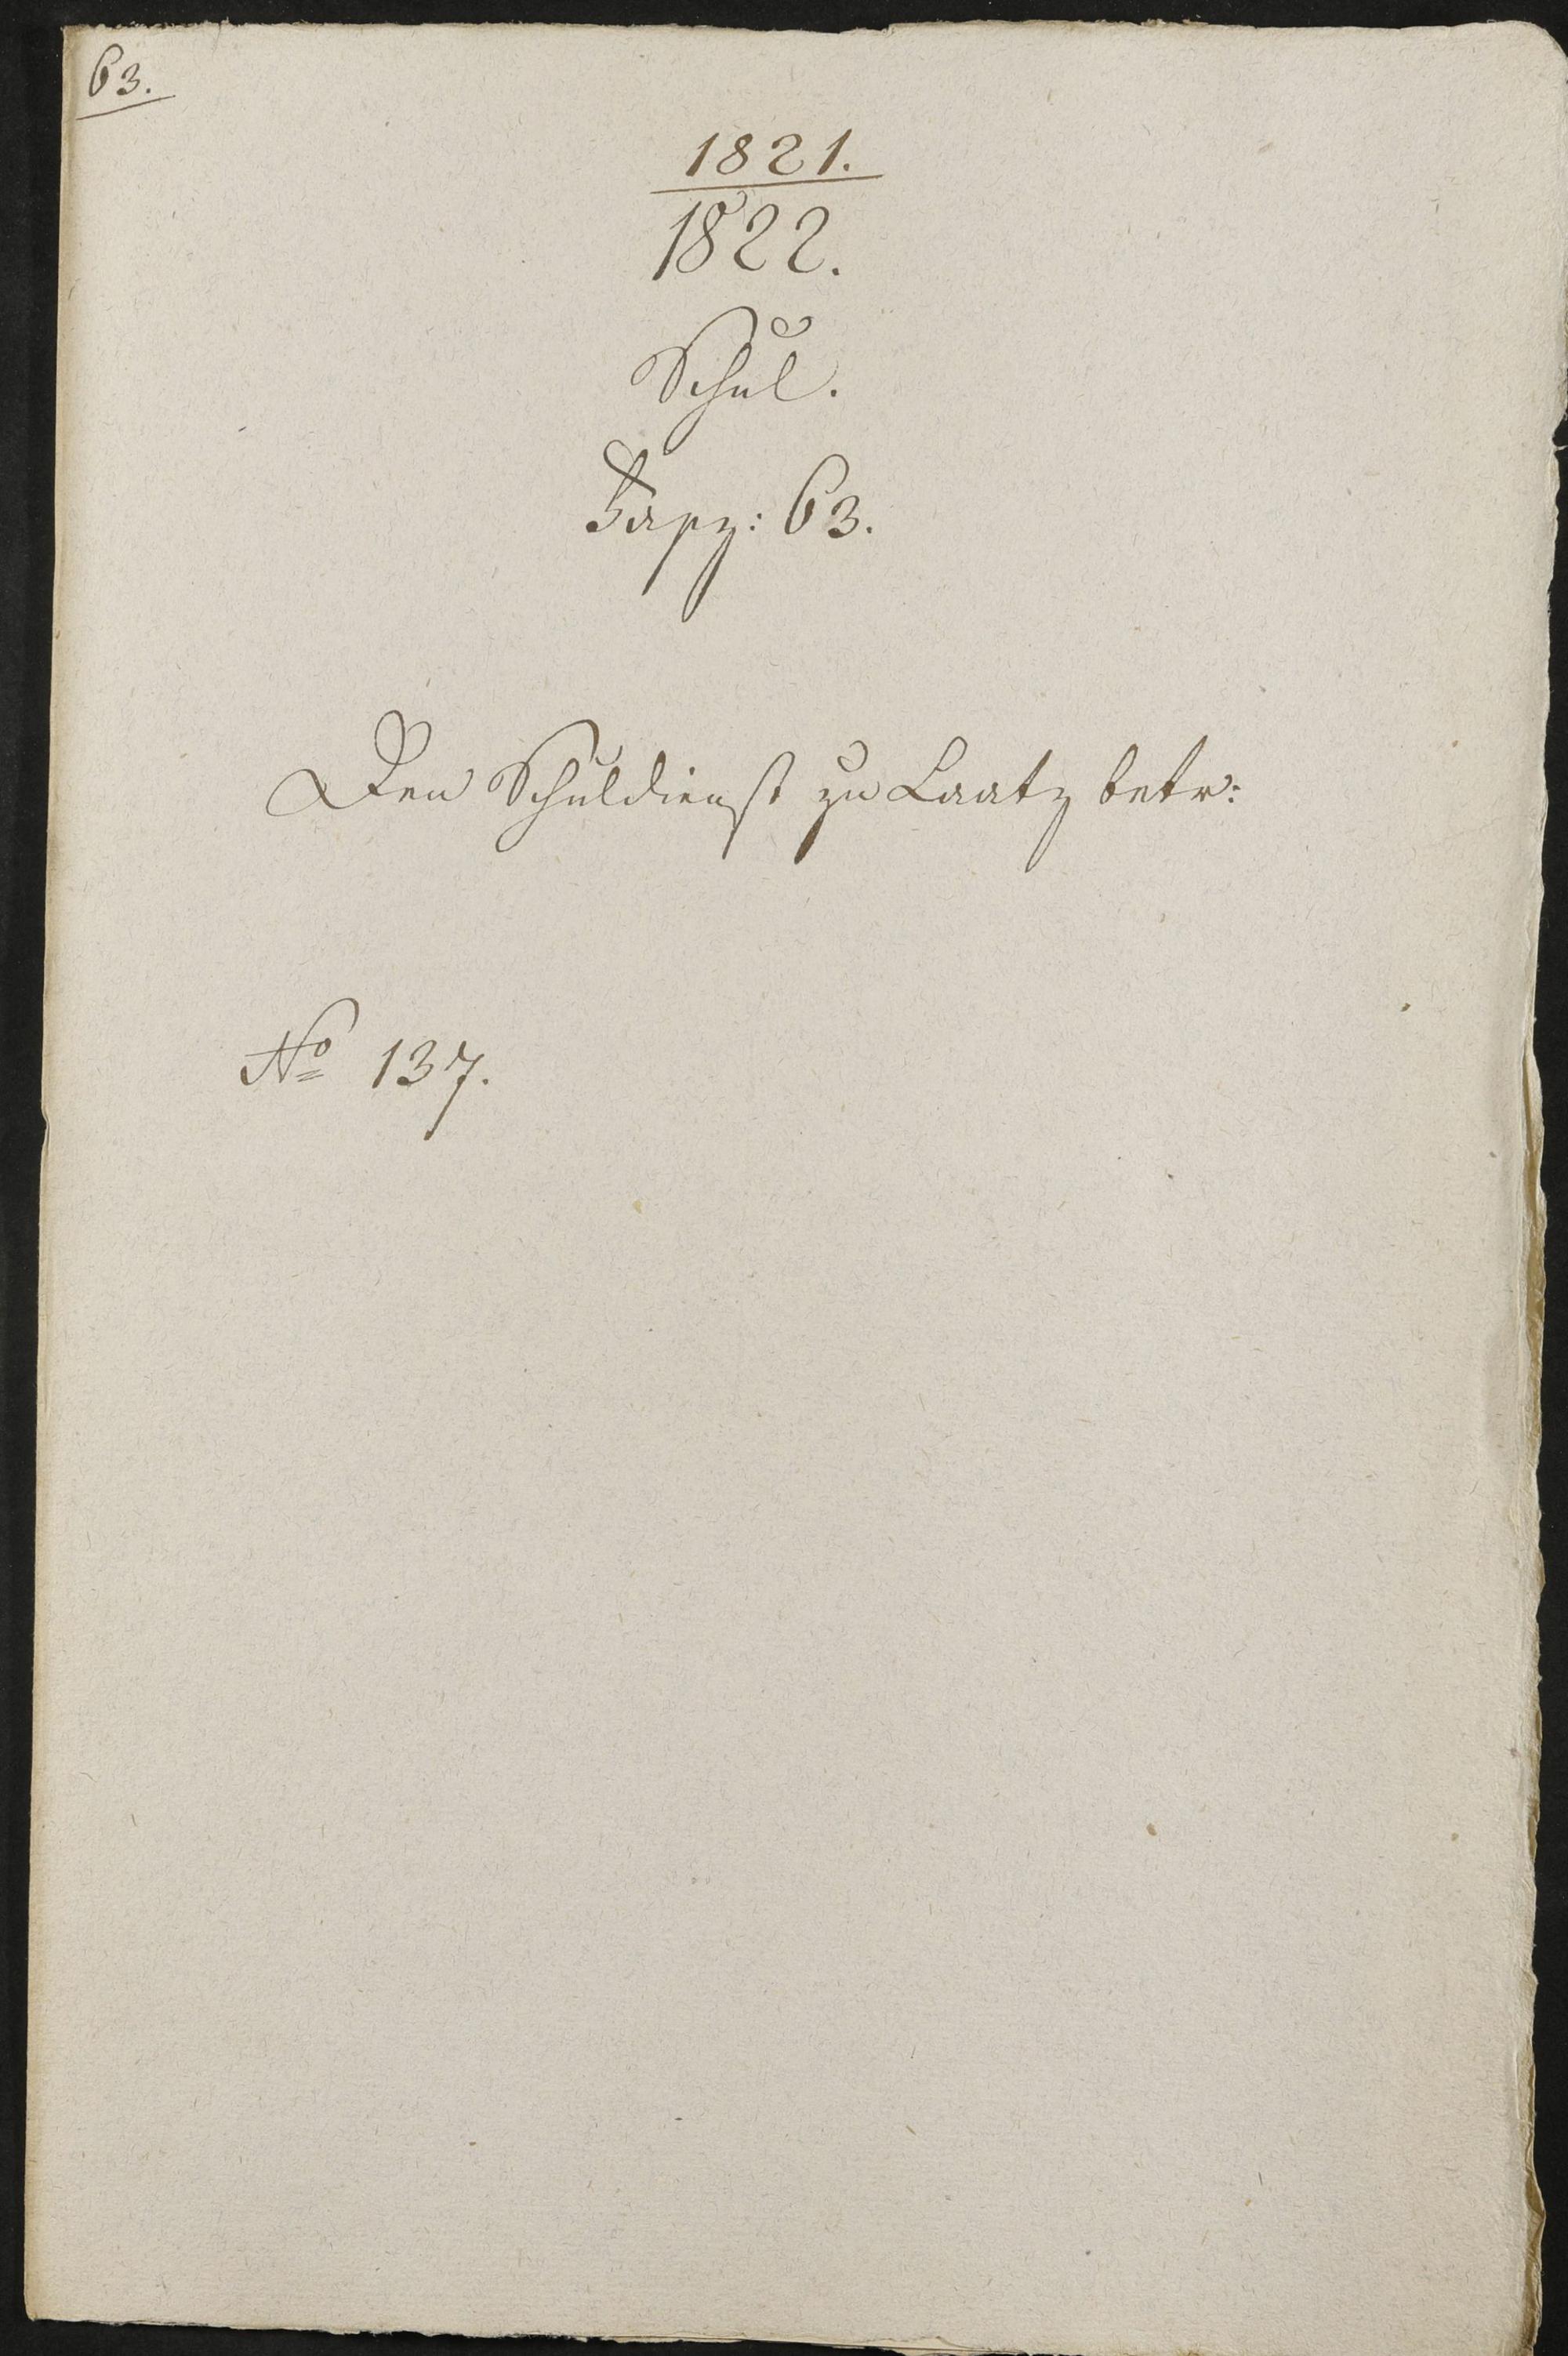 63.
1821.
1822.
Schul.
63.
Den Schuldienst zu Laatz betr:
No 137.